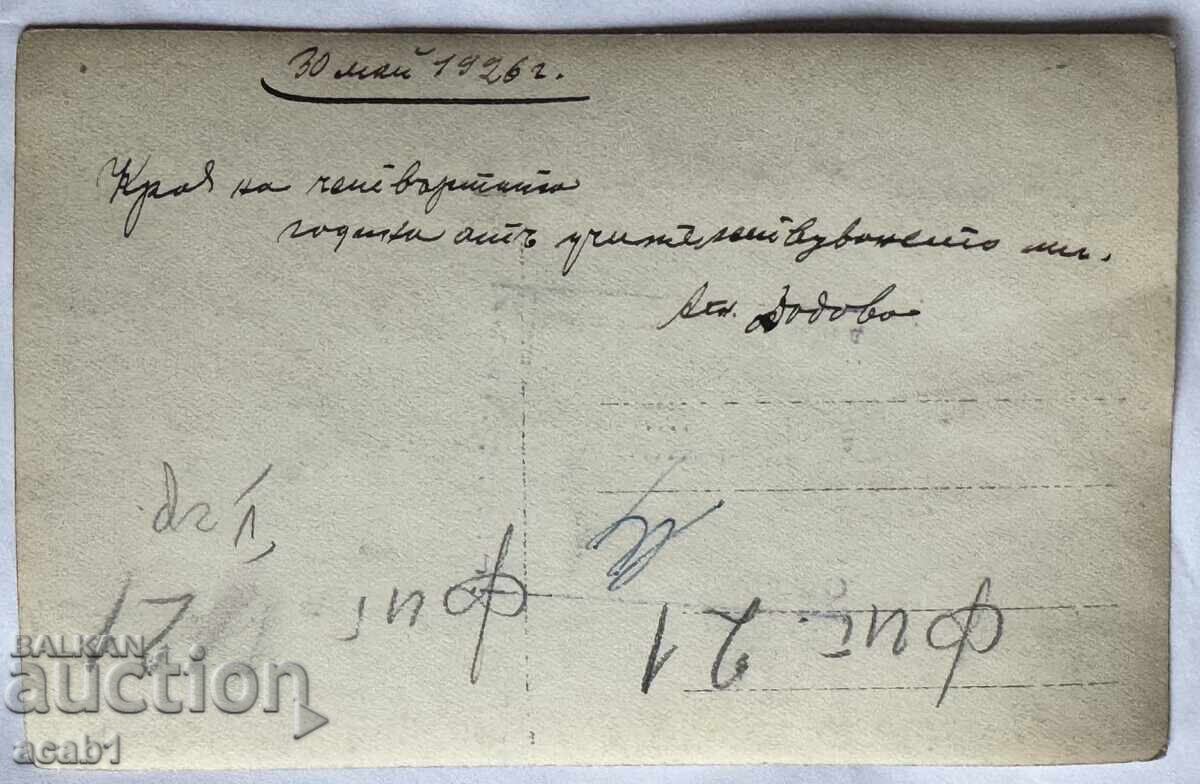 30 май 1926 г.
Края на четвъртата
година отъ учителствуването ми.
Ат. Додова
фиг. 21
фиг
BALKAN
auction
acab1